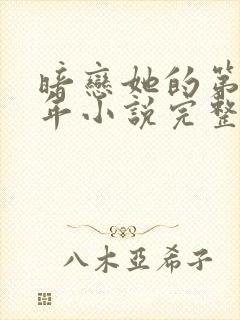 暗戀她的第
年小說完整
八木亞希子